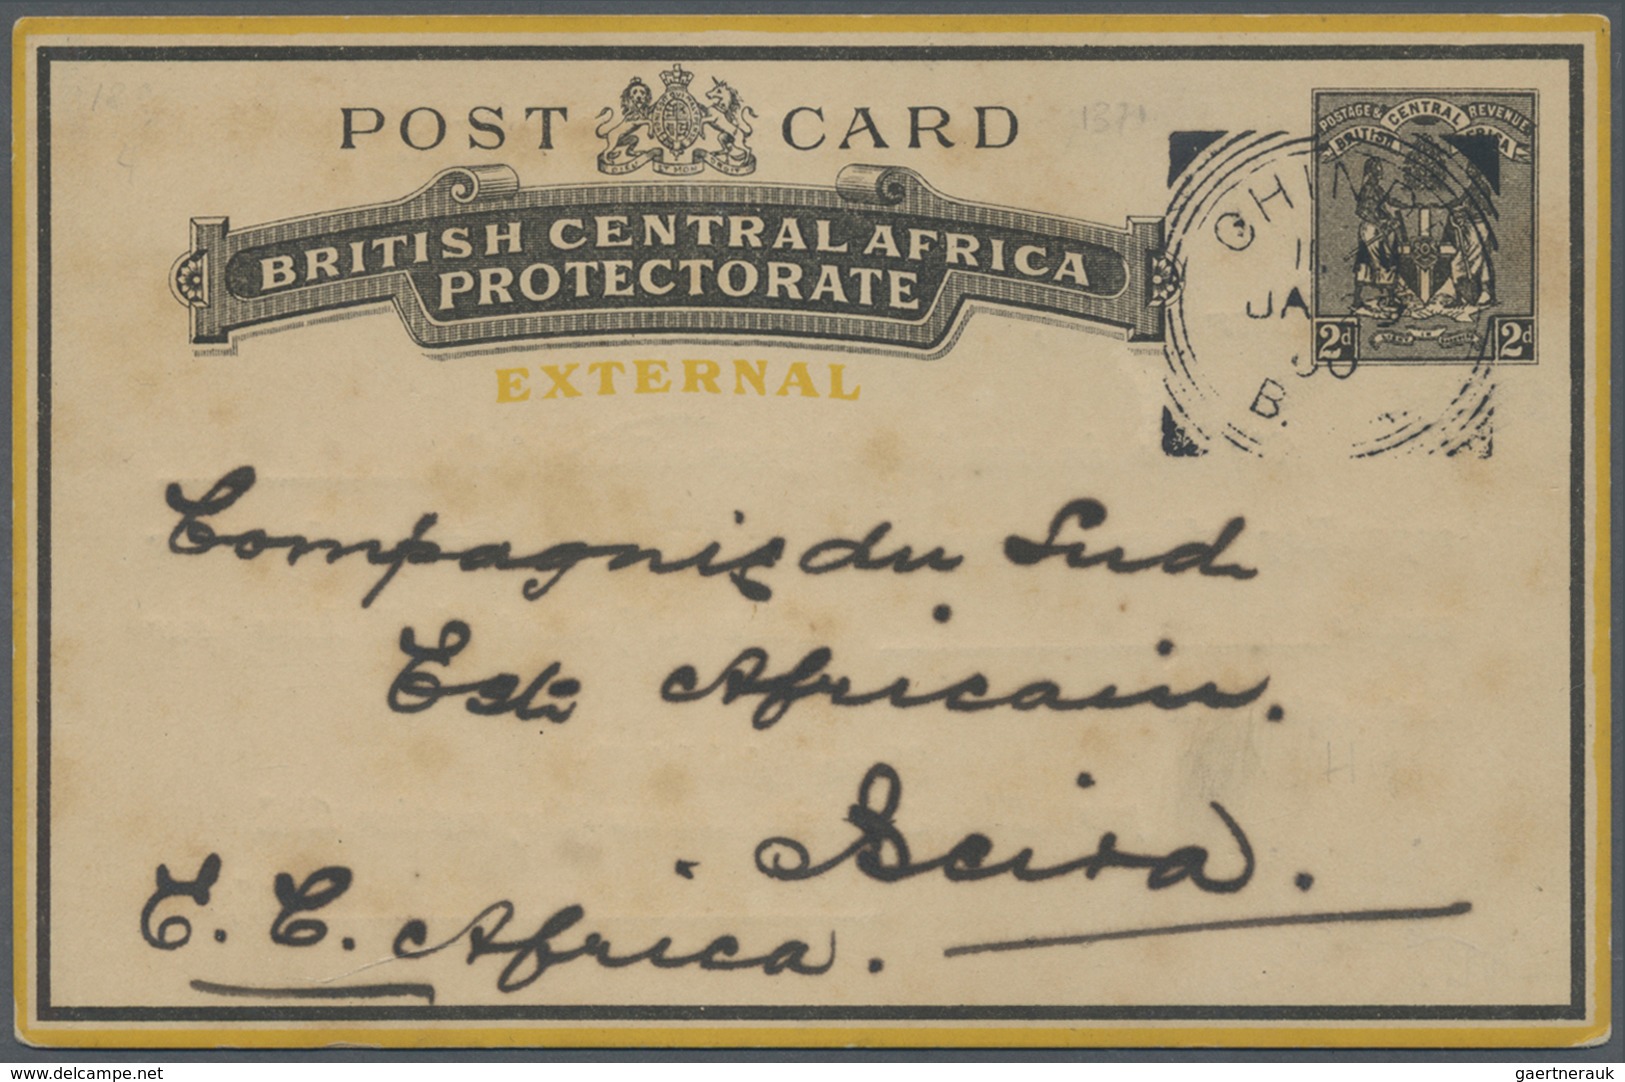 POST CARD
DIEU ET MON DROIT
BRITISH CENTRAL AFRICA
PROTECTORATE
EXTERNAL
POSTAGE & REVENUE
BRITISH CENTRAL AFRICA
2d 2d
CHIN
JA
B.
1871
Compagnie du Sud
Est Africain.
Beira.
E. C. Africa.
delcampe.net
gaertnerauk